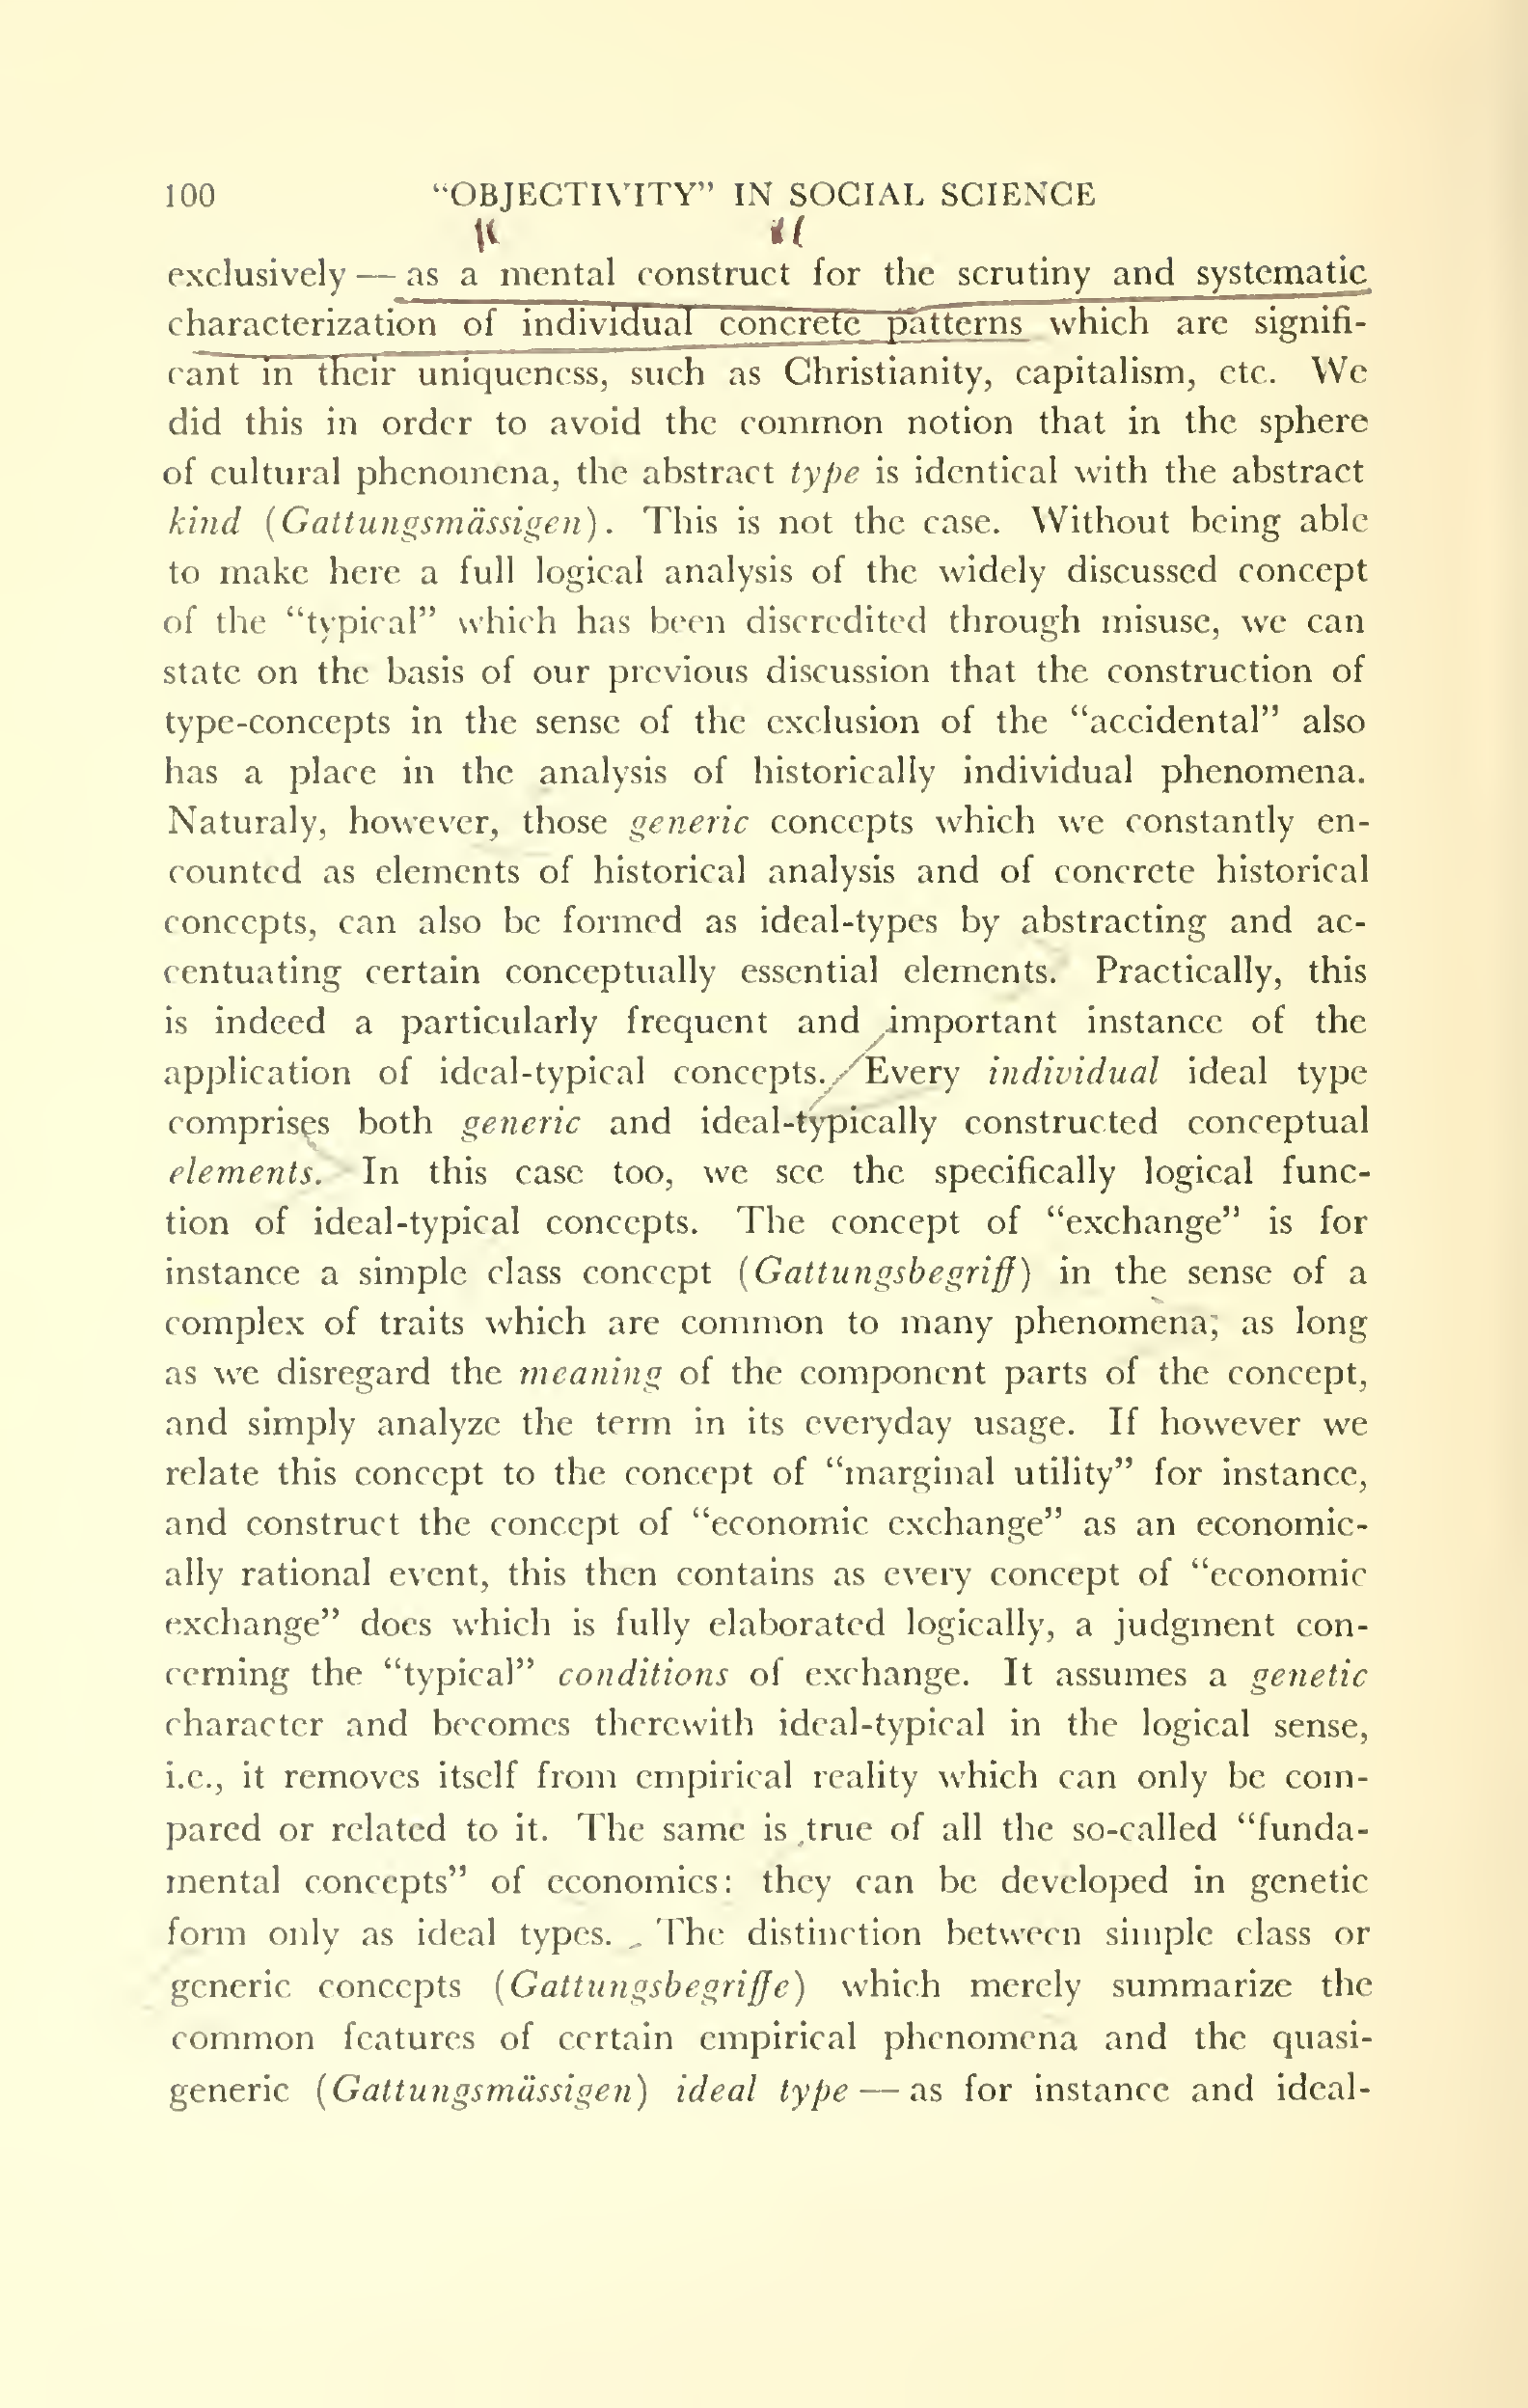 100 "OBJECTIVITY" IN SOCIAL SCIENCE
exclusively — as a mental construct for the scrutiny and systematic
characterization of individual concrete patterns which are signifi-
cant in their uniqueness, such as Christianity, capitalism, etc. We
did this in order to avoid the common notion that in the sphere
of cultural phenomena, the abstract type is identical with the abstract
kind (Gattungsmässigen). This is not the case. Without being able
to make here a full logical analysis of the widely discussed concept
of the "typical" which has been discredited through misuse, we can
state on the basis of our previous discussion that the construction of
type-concepts in the sense of the exclusion of the "accidental" also
has a place in the analysis of historically individual phenomena.
Naturaly, however, those generic concepts which we constantly en-
counted as elements of historical analysis and of concrete historical
concepts, can also be formed as ideal-types by abstracting and ac-
centuating certain conceptually essential elements. Practically, this
is indeed a particularly frequent and important instance of the
application of ideal-typical concepts. Every individual ideal type
comprises both generic and ideal-typically constructed conceptual
elements. In this case too, we see the specifically logical func-
tion of ideal-typical concepts. The concept of "exchange" is for
instance a simple class concept (Gattungsbegriff) in the sense of a
complex of traits which are common to many phenomena, as long
as we disregard the meaning of the component parts of the concept,
and simply analyze the term in its everyday usage. If however we
relate this concept to the concept of "marginal utility" for instance,
and construct the concept of "economic exchange" as an economic-
ally rational event, this then contains as every concept of "economic
exchange" does which is fully elaborated logically, a judgment con-
cerning the "typical" conditions of exchange. It assumes a genetic
character and becomes therewith ideal-typical in the logical sense,
i.e., it removes itself from empirical reality which can only be com-
pared or related to it. The same is true of all the so-called "funda-
mental concepts" of economics: they can be developed in genetic
form only as ideal types. The distinction between simple class or
generic concepts (Gattungsbegriffe) which merely summarize the
common features of certain empirical phenomena and the quasi-
generic (Gattungsmässigen) ideal type — as for instance and ideal-